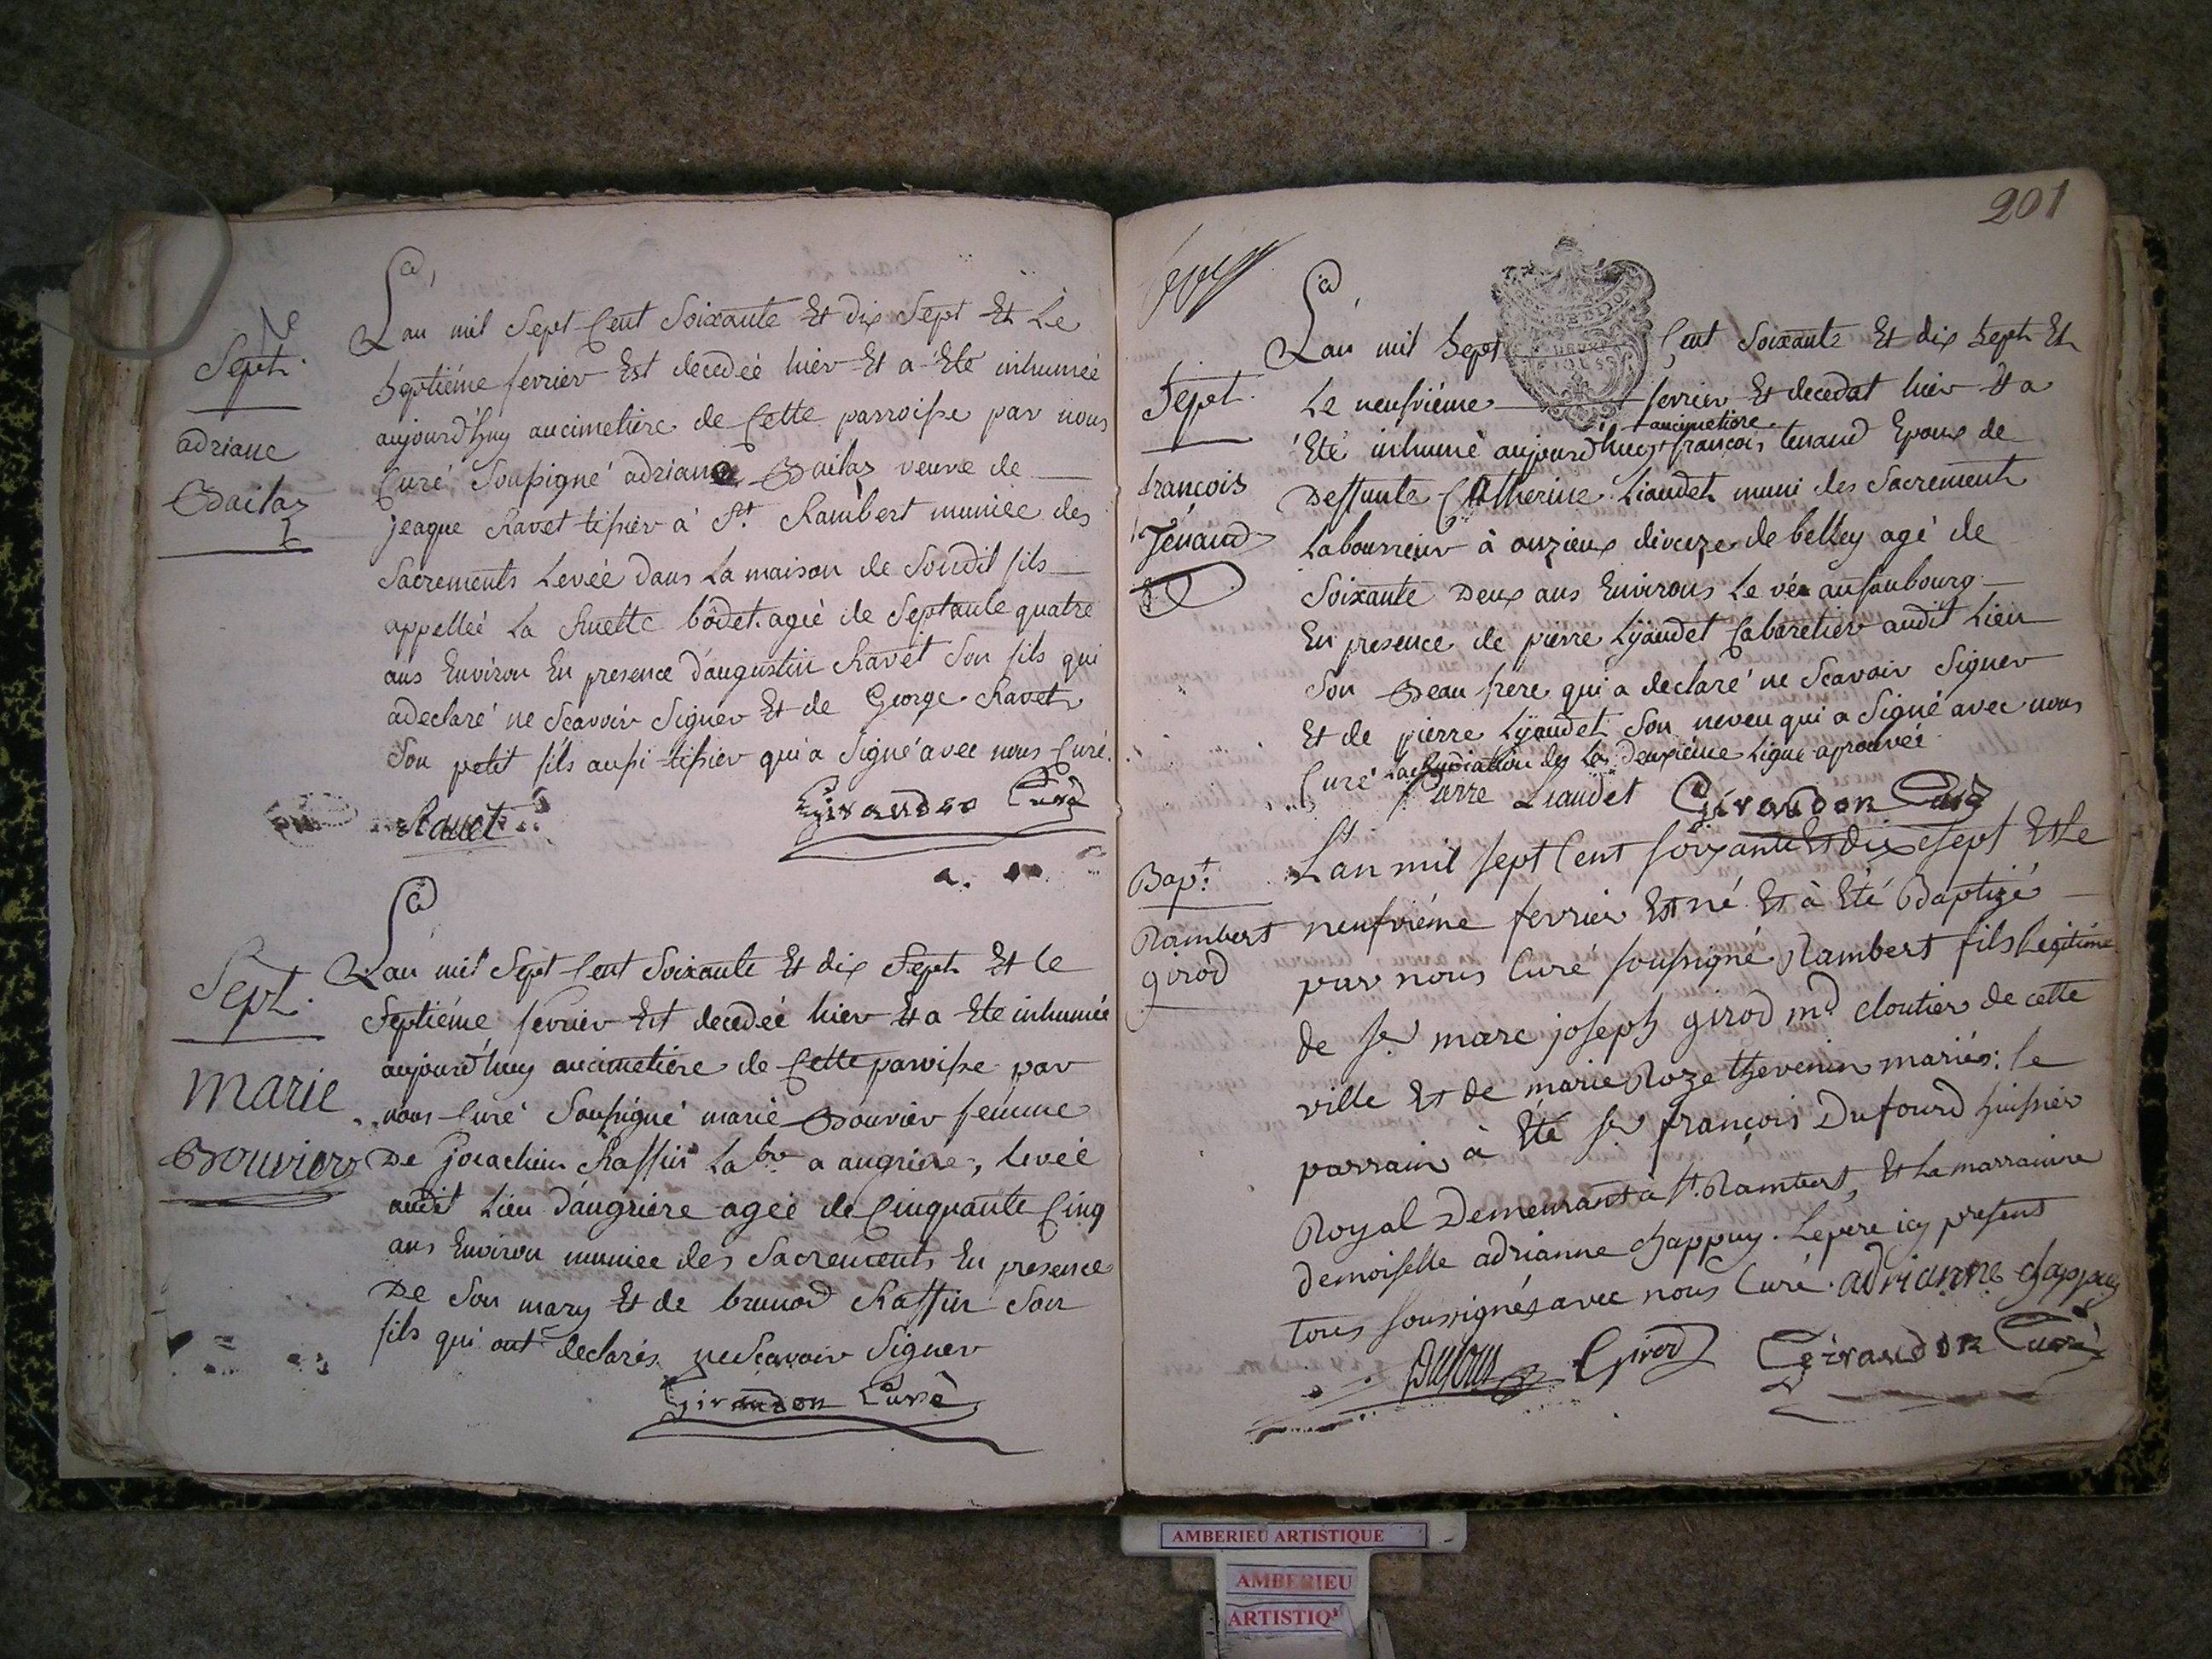 Sept.
adriane
Bailaz
Lan mil Sept Cent Soixante Et dix Sept Et Le
Septiéme fevrier Est decedéé hier Et a Eté inhumeé
aujourd'huy aucimetiere de Cette parroisse par nous
Curé Soussigné adriane Bailaz veuve de
jeaque Ravet tissier a St. Rambert muniee des
Sacrements Levée dans La maison de Soudit fils
appelleé La bôdet. ageé de Septante quatre
ans Environ En presence d'augustin Ravet Son fils qui
adeclaré ne Scavoir Signer Et de George Ravet
Son petit fils aussi tissier qui a Signé avec nous Curé.
Ravet
Giraudon Curé
Sept.
Marie
Bouvier
Lan mil Sept Cent Soixante Et dix Sept Et Le
Septiéme fevrier Est decedéé hier Et a Eté inhumée
aujourd'huy aucimetiere de Cette paroisse par
nous Curé Soussigné marie Bouvier femme
De joachim Raffin Labr a angriere, levée
audit Lieu d'angriere ageé de Cinquante Cinq
ans Environ muniee des Sacrements En presence
De Son mary Et de brunod Raffin Son
fils qui ont declarés ne Scavoir Signer
Giraudon Curé
201
Sept.
françois
Tenaud
Lan mil Sept Cent Soixante Et dix Sept Et
Le neufviéme fevrier Et decedat hier Et a
aucimetiere
Eté inhumé aujourd'huy + françois tenaud Epoux de
Deffunte Catherine Liaudet muni des Sacrements
Laboureur à onzieux dioceze de belley agé de
Soixante Deux ans Environs Le vé au faubourg
En presence de pierre Lÿaudet Cabaretier audit Lieu
Son Beau frere qui a declaré ne Scavoir Signer
Et de pierre Lÿaudet Son neveu qui a Signé avec nous
Curé La Radiation des La deuxiéme Ligne aprouvéé
Pierre Liaudet Giraudon Curé
Bapt:
Rambert
girod
L'an mil sept Cent soixante Et dix sept Et Le
neufviéme fevrier Est né Et à Eté Baptizé
par nous Curé soussigné Rambert fils Legitime
de Sr marc joseph girod md cloutier de cette
ville Et de marie Roze thevenin mariés: le
parrain à Eté Sr françois Dufourd huissier
Royal Demeurant à St. Rambert, Et La marrainne
demoiselle adrianne chappuy. Le pere icy present
tous soussignés avec nous Curé. adrianne chappuy
Dufour Girod Giraudon Curé
AMBERIEU ARTISTIQUE
AMBERIEU
ARTISTIQ'